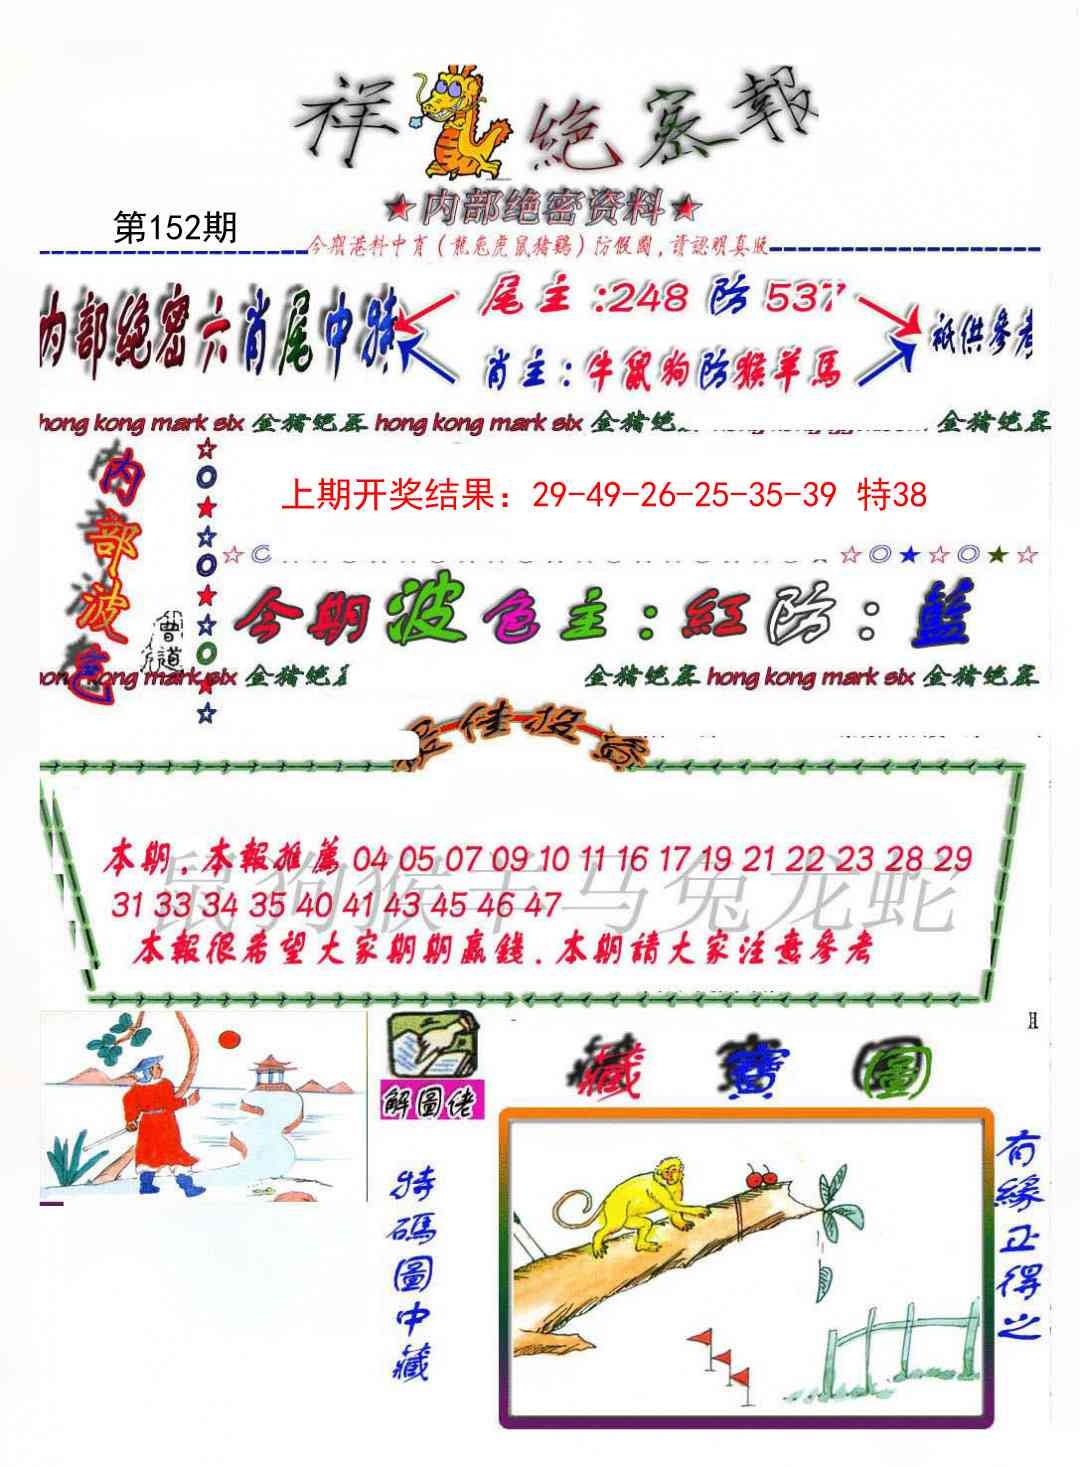 祥 絕密報
★内部绝密资料★
第152期
今期港料中肖(龍兔虎鼠猪鷄)防假圖,請認明真版
内部绝密六肖尾中特
尾主:248 防 537
肖主:牛鼠狗防猴羊馬
祇供參考
hong kong mark six 金猪绝密 hong kong mark six 金猪绝密 hong kong mark six 金猪绝密
内部波色
曾道
上期开奖结果：29-49-26-25-35-39 特38
今期波色主:紅防:藍
hong kong mark six 金猪绝密 金猪绝密 hong kong mark six 金猪绝密
佳投
鼠狗猴羊马兔龙蛇
本期,本報推薦 04 05 07 09 10 11 16 17 19 21 22 23 28 29
31 33 34 35 40 41 43 45 46 47
本報很希望大家期期贏錢.本期請大家注意參考
H
解圖佬
藏寶圖
特碼圖中藏
有緣正得之